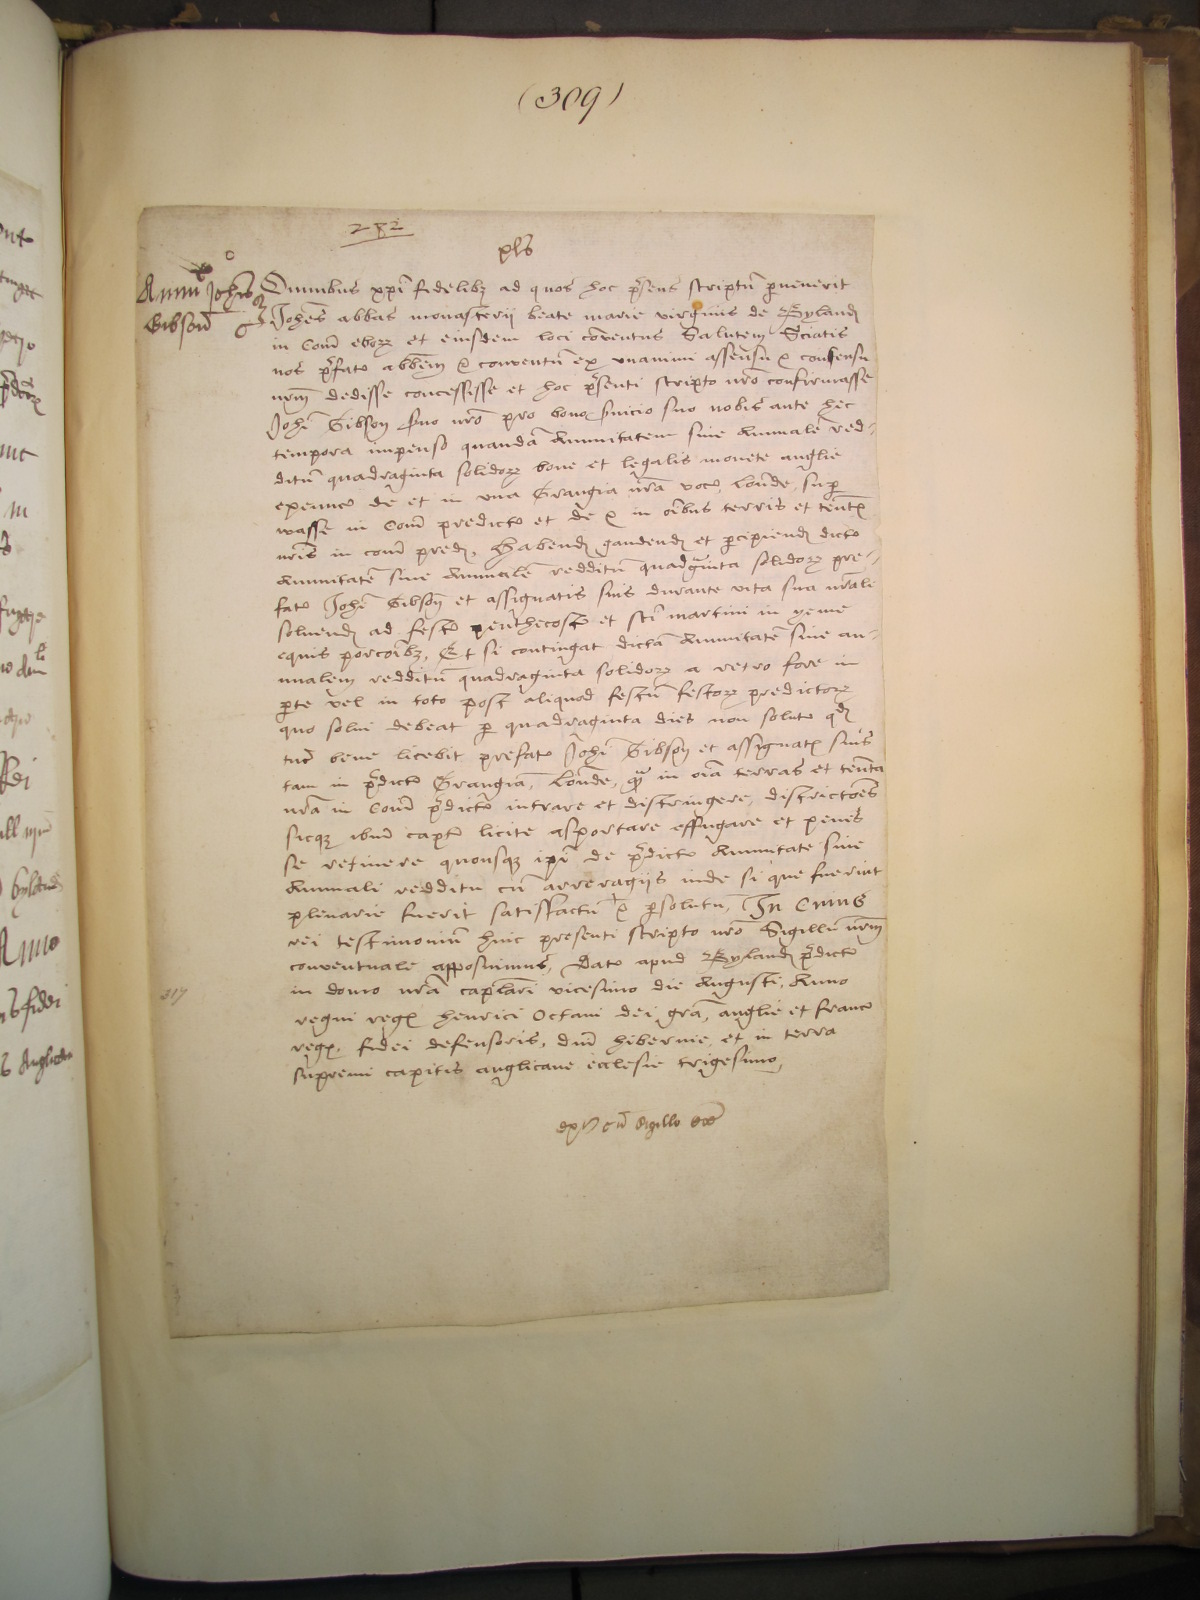 (309)
282
xls
Annu Johis
Gibson
Omnibus xpi fidelibz ad quos hoc psens scriptu pvenerit
Johes abbas monasterii beate marie virginis de Byland
in Com ebor et eiusdem loci coventus Salutem Sciatis
nos pfat abbem & conventu ex unanimi assensu & consensu
nrm dedisse concessisse et hoc psenti scripto nro confirmasse
Johi Gibson suo nro pro bono suicio suo nobis ante hec
tempora impenso quanda Annuitatem sive Annuale red-
ditu quadraginta solidor bone et legalis monete anglie
exeunt de et in una Grangia nra voc londe sup
wasse in Com predicto et de & in oibus terris et tent
nris in com pred, Habend gaudend et pcipiend dict
Annuitate sive Annuale redditu quadginta solidor pre-
fat Johi Gibson et assignatis suis durante vita sua nrali
solvend ad fest penthecost et sci martini in yeme
equis porcoibz, Et si contingat dicta Annuitate sive an-
nualem redditu quadraginta solidor a retro fore in
pte vel in toto post aliquod festu festor predictor
quo solvi debeat p quadraginta dies non solut qd
tuc bene licebit prefat Johi Gibson et assignat suis
tam in pdict Grangia, londe, qm in oia terras et tenta
nra in Com pdict intrare et distringere, districtoes
sicqz ibm capt licite asportare effugare et penes
se retinere quousqz ipi de pdict Annuitate sive
Annuali redditu cu arreragiis inde si que fuerint
plenarie fuerit satisfactu & psolutu, In Cuius
rei testimoniu huic presenti scripto nro Sigillu nrm
conventuale apposuimus, Dat apud Byland pdict
in domo nra caplari vicesimo die Augusti, Anno
regni reg henrici Octavi dei gra, anglie et franc
reg, fidei defensoris, dni hibernie, et in terra
supremi capitis anglicane ecclesie trigesimo,
317
cu sigillo